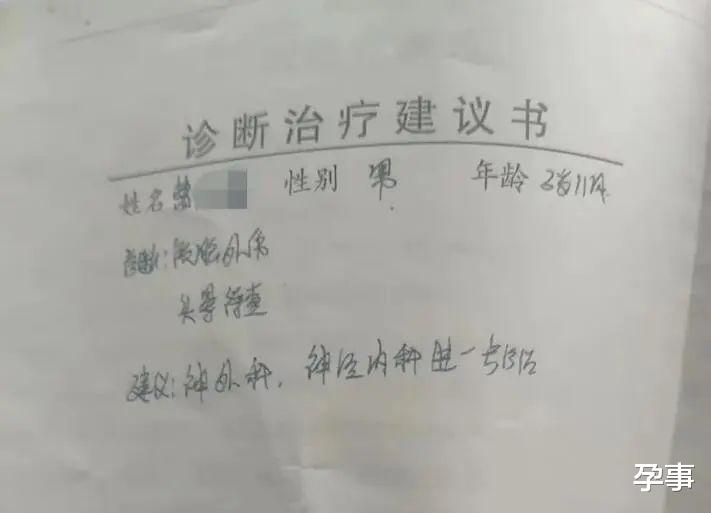 诊断治疗建议书
姓名 性别 男 年龄 3岁11月
诊断: 颅脑外伤
头晕待查
建议: 神外科, 神经内科进一步诊治
孕事